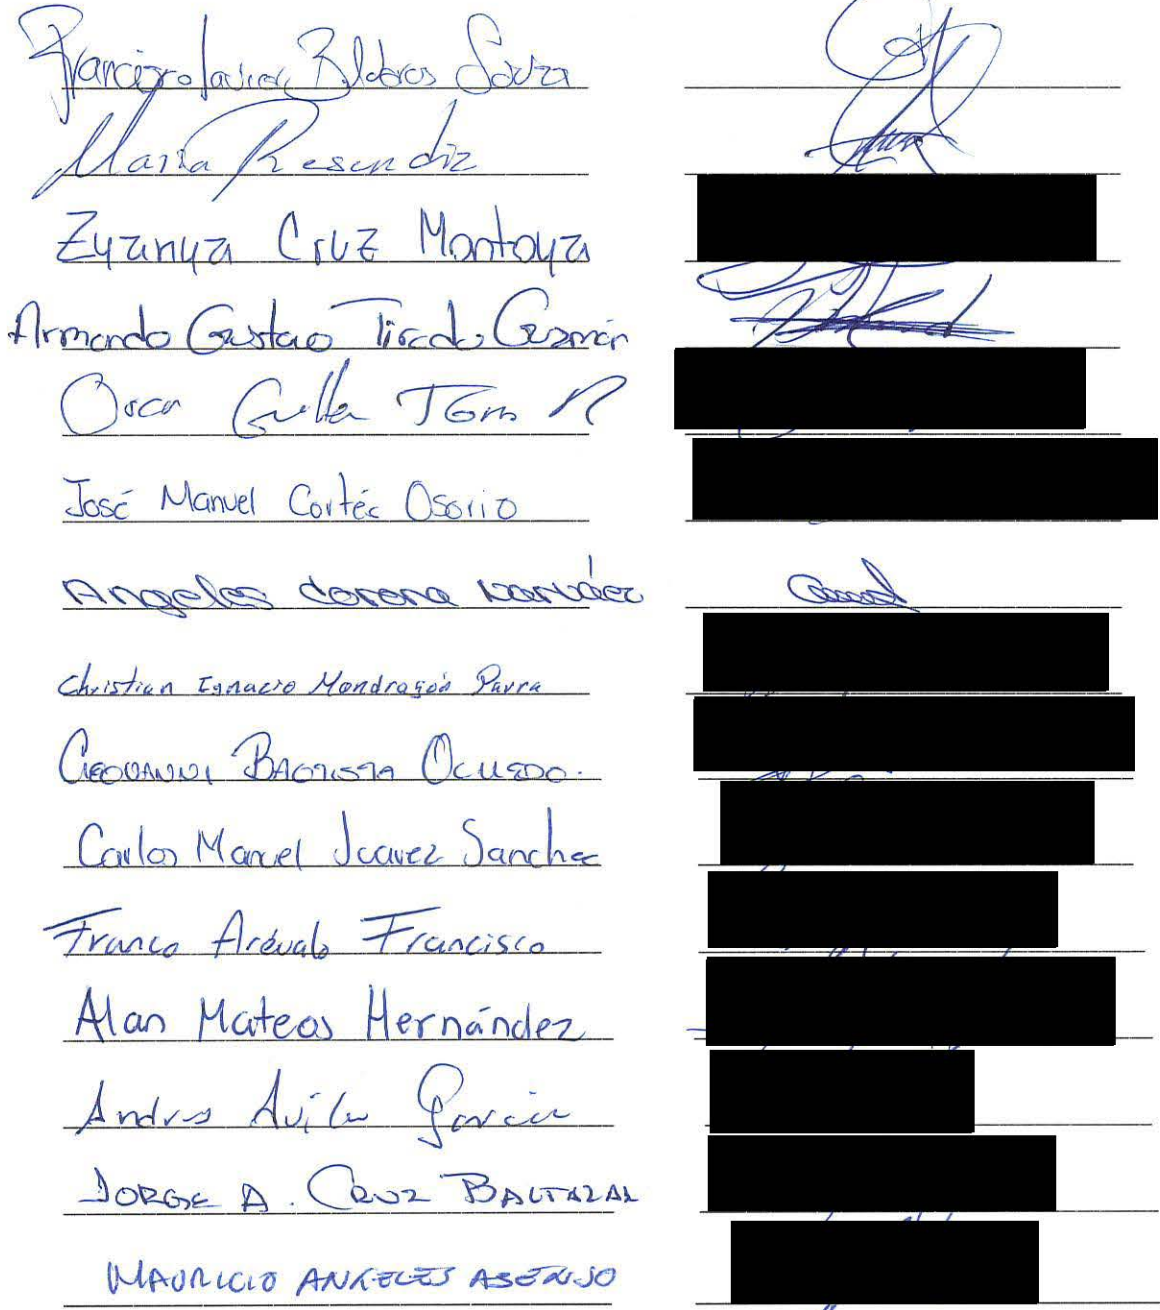 Francisco Javier Souza
Maria Resendiz
Zyanya Cruz Montoya
Armando Gustavo Tirado Guzmán
Oscar
José Manuel Cortés Osorio
Angeles Lorena Narváez
Christian Ignacio Mondragón Parra
GEOVANNI BAUTISTA
Carlos Manuel Juarez Sanchez
Franco Arévalo Francisco
Alan Mateos Hernández
Andres Avila Garcia
JORGE A. CRUZ BALTAZAR
MAURICIO ANGELES ASENJO